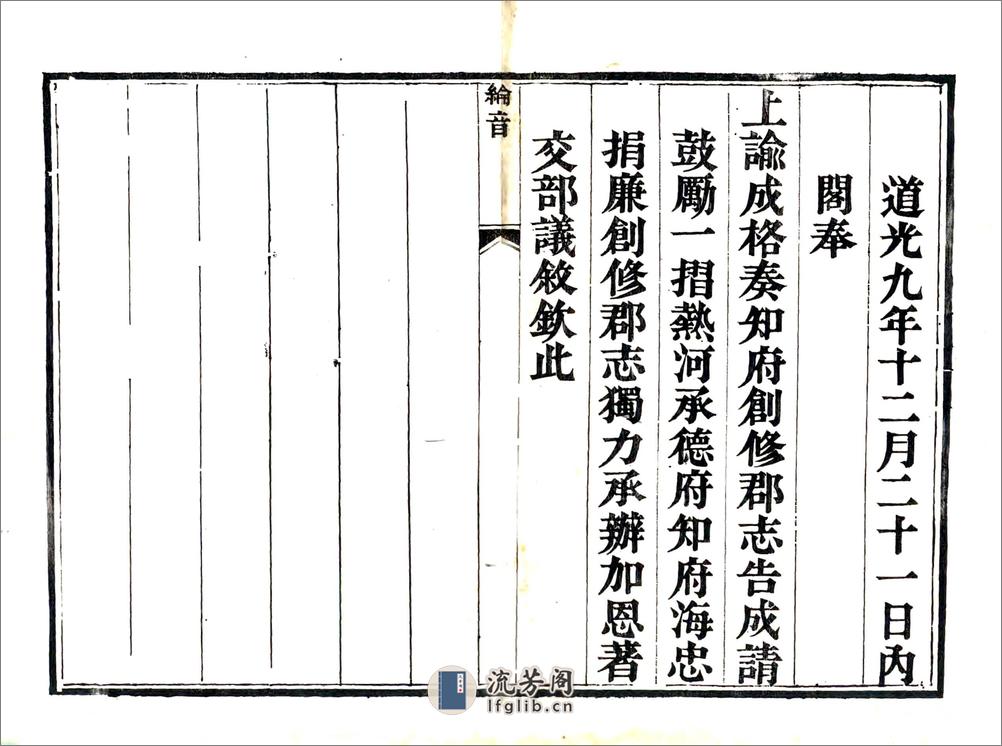 道光九年十二月二十一日內
閣奉
上諭成格奏知府創修郡志告成請
鼓勵一摺熱河承德府知府海忠
捐廉創修郡志獨力承辦加恩著
交部議敘欽此
綸音
流芳阁
lfglib.cn